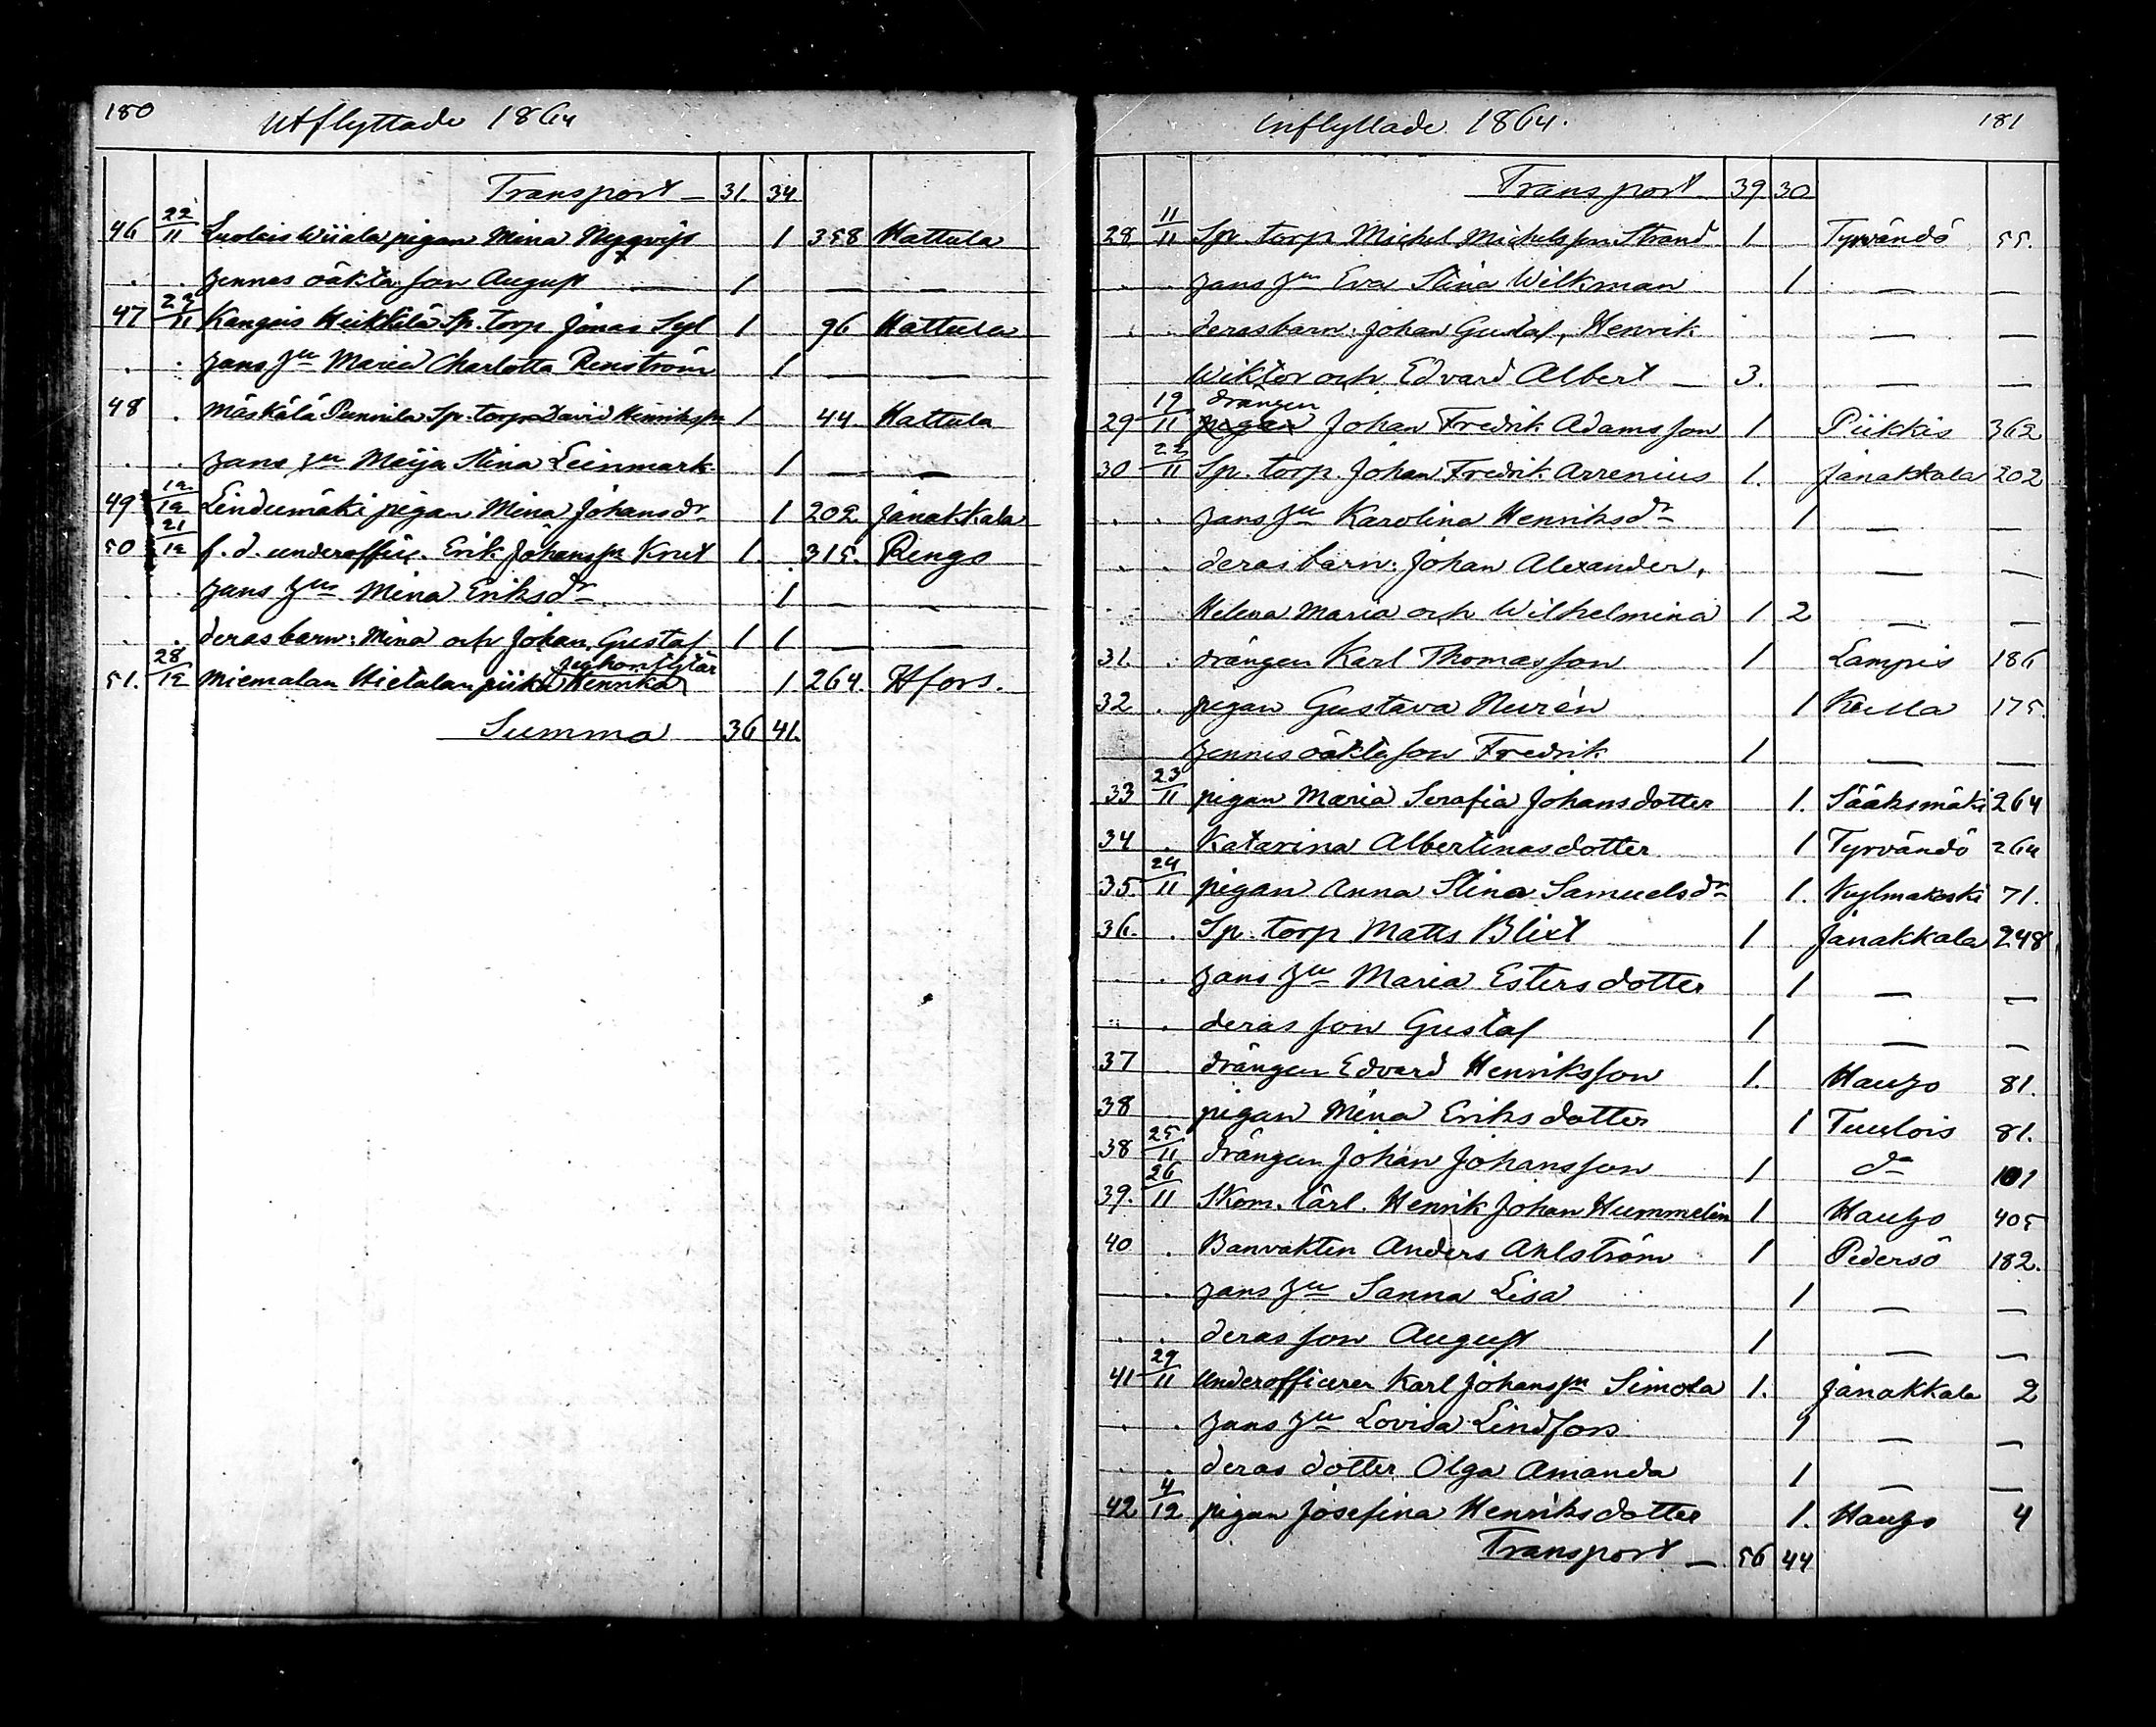 180
Utflyttade 1864
Transport — 31. 34.
46 22/11 Luolais Wiiala pigan Mina Nyqvist 1 358 Hattula
. . hennes oäkta son August 1 — —
47 23/11 Kangais Heikkilä Sp. torp Jonas Syl 1 96 Hattula
. . hans hu Maria Charlotta Renström 1 — —
48 . Mäskälä Punnila Sp. torp David Henriksson 1 44 Hattula
. . hans hu Maija Stina Leinmark 1 — —
49 12/12 Lindumäki pigan Mina Johansdr 1 202 Janakkala
50 21/12 f.d. underoffic. Erik Johansson Krut 1. 315. Rengo
. . hans hu Mina Eriksdr 1 — —
. . deras barn: Mina och Johan Gustaf 1 1 — —
51. 28/12 Miemalan Hietalan piika Henrika 1 264. Hfors.
Summa 36 41.
Inflyttade 1864.
181
Transport 39 30
28 11/11 Sp. torp Michel Michelsson Strand 1 Tyrvändö 55.
. . hans hu Eva Stina Wilkman 1 — —
. . deras barn: Johan Gustaf, Henrik — —
Wiktor och Edvard Albert — 3. — —
29 19/11 drängen pigan Johan Fredrik Adamsson 1 Piikkis 362
30 22/11 Sp. torp. Johan Fredrik Arrenius 1. Janakkala 202
. . hans hu Karolina Henriksdr 1 — —
. . deras barn: Johan Alexander, — —
. . Helena Maria och Wilhelmina 1 2 — —
31. . drängen Karl Thomasson 1 Lampis 186
32 . pigan Gustava Nurén 1 Kalla 175.
hennes oäkta son Fredrik 1 — —
33 23/11 pigan Maria Serafia Johansdotter 1. Sääksmäki 264
34 . Katarina Albertinasdotter 1 Tyrvändö 264
35. 24/11 pigan Anna Stina Samuelsdr 1. Kylmäkoski 71.
36. . Sp. torp Matts Blixt 1 Janakkala 248
. . hans hu Maria Estersdotter 1 — —
. . deras son Gustaf 1 — —
37 drängen Edvard Henriksson 1. Hauho 81.
38 pigan Mina Eriksdotter 1 Tuulois 81.
38 25/11 drängen Johan Johansson 1 do 101
39. 26/11 Skom. lärl. Henrik Johan Hummelin 1 Hauho 405
40 . Banvakten Anders Ahlström 1 Pedersö 182.
. hans hu Sanna Lisa 1 — —
. . deras son August 1 — —
41 29/11 Underofficeren Karl Johansson Simola 1. Janakkala 2
. . hans hu Lovisa Lindfors 1 — —
. . deras dotter Olga Amanda 1 — —
42 4/12 pigan Josefina Henriksdotter 1. Hauho 4
Transport — 56 44